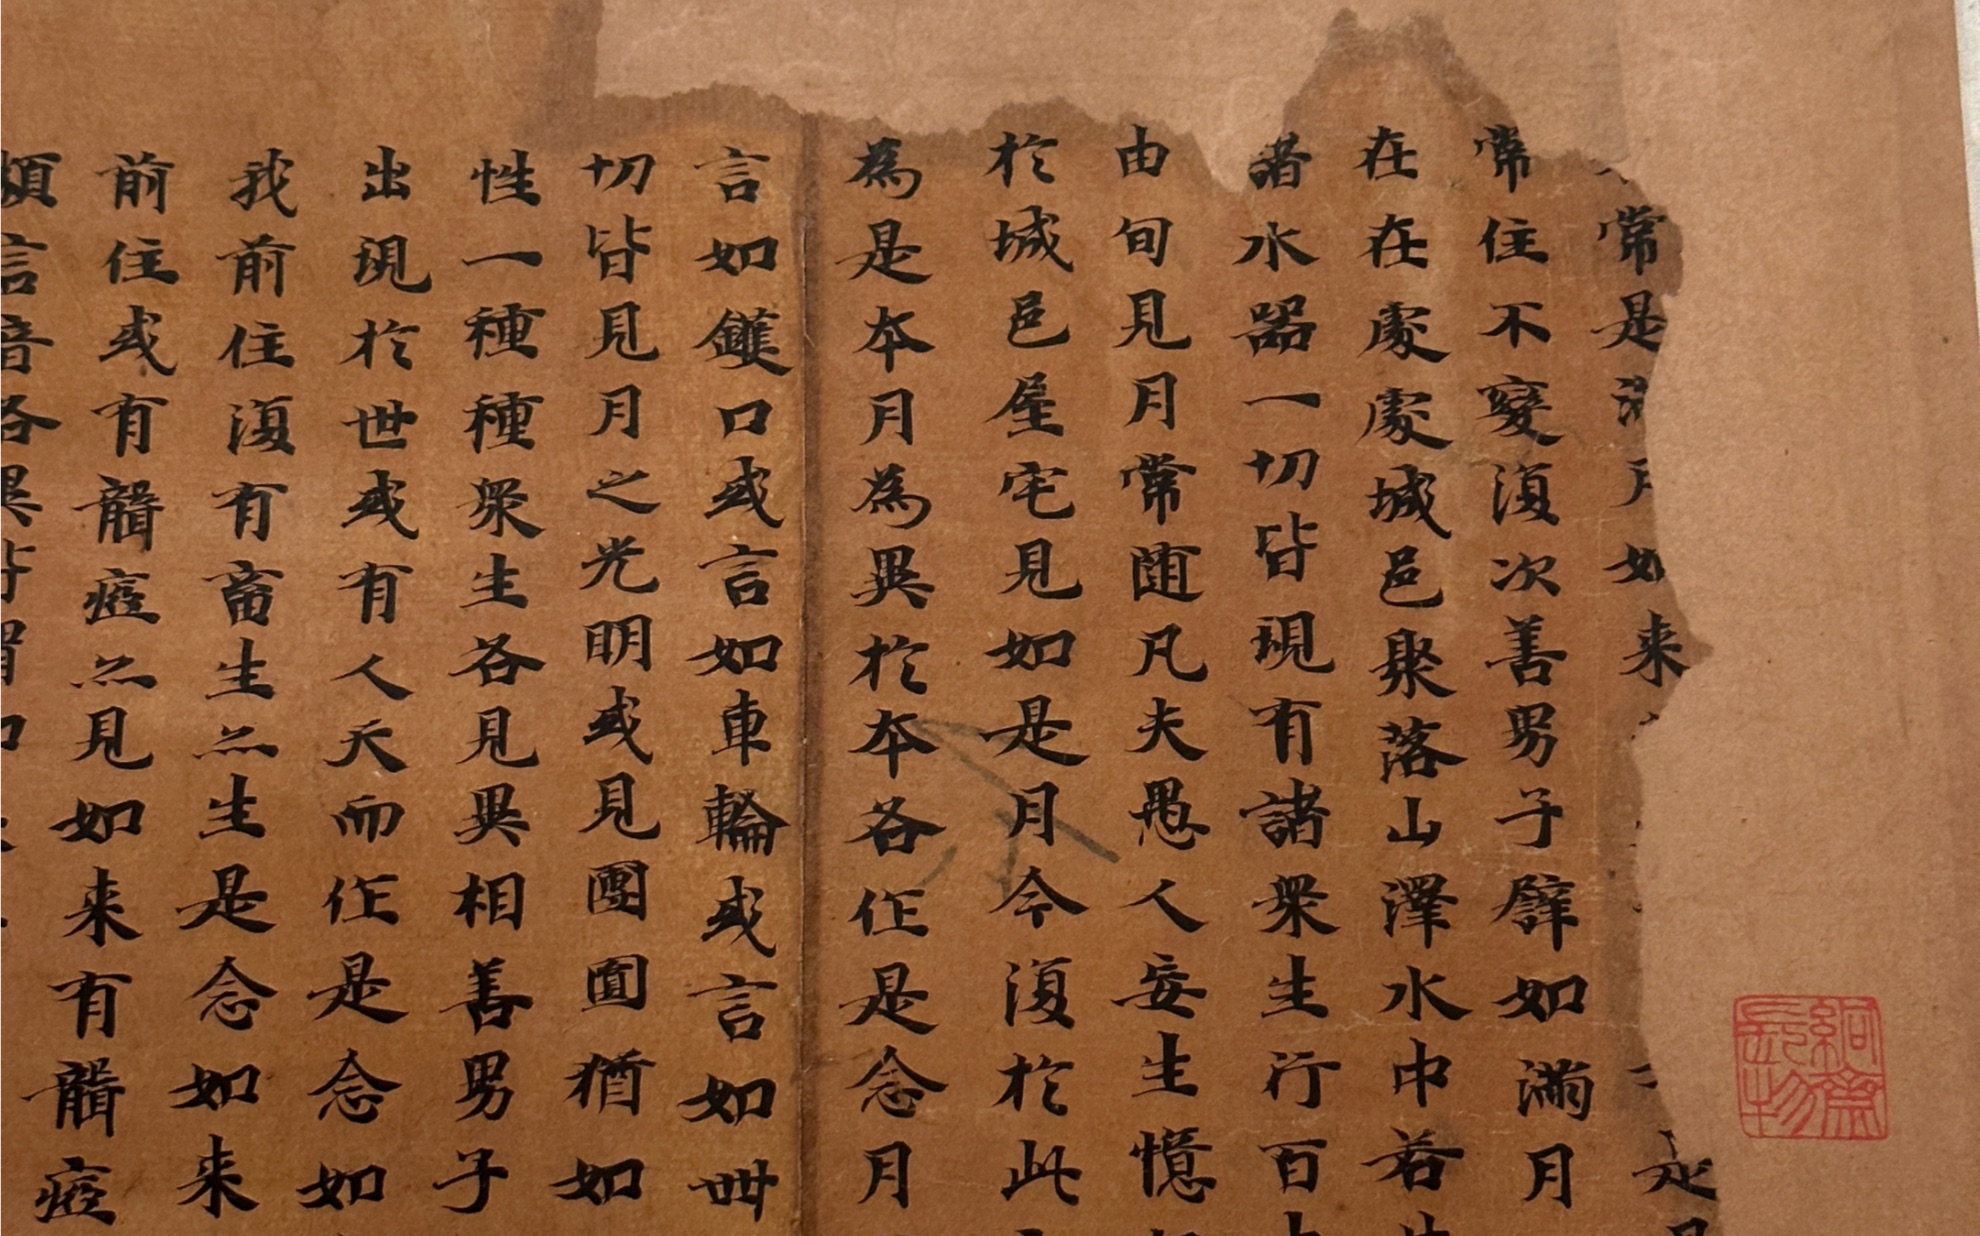 常是滿月如来
常住不變復次善男子譬如滿月
在在處處城邑聚落山澤水中若
諸水器一切皆現有諸衆生行百
由旬見月常随凡夫愚人妄生憶
於城邑屋宅見如是月今復於此
為是本月為異於本各作是念月
言如鑊口或言如車輪或言如卌
切皆見月之光明或見團圓猶如
性一種種衆生各見異相善男子
出現於世或有人天而作是念如
我前住復有畜生亦生是念如来
前住或有聾瘂亦見如来有聾瘂
類言音各異皆謂如